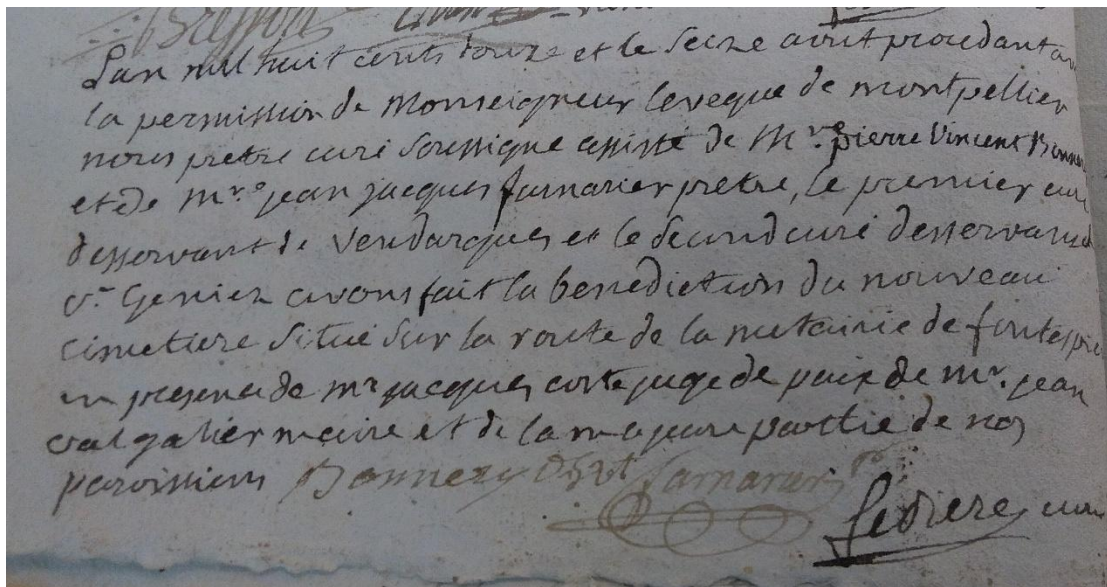 Bresson
Lan mil huit cents douze et le seize aout procedant
la permission de Monseigneur leveque de montpellier
nous pretre curé soussigne assiste de Mr. pierre Vincent
et de mr. jean jacques farnarier pretre, le premier curé
desservant de Vendargues et le second curé desservant
st. Geniez avons fait la benediction du nouveau
cimetiere situé sur la route de la metairie de
en presence de mr jacques coste juge de paix de mr. jean
valgalier maire et de la majeure partie de nos
paroissiens Bonnery farnarier ptre
curé